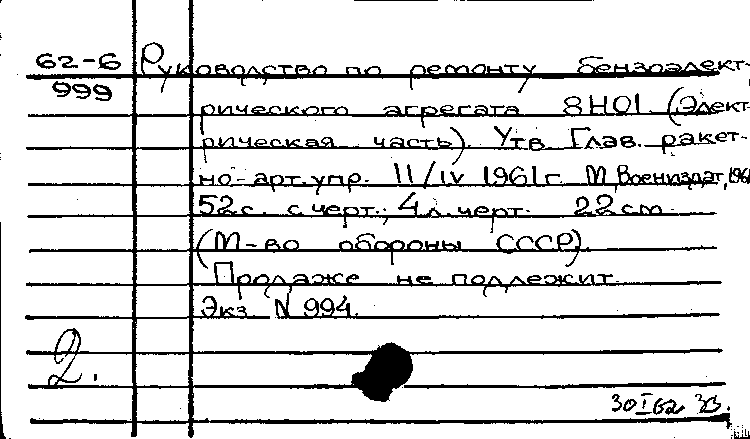 62-6 Руководство по ремонту бензоэлект-
999
рического агрегата 8Н01. (Элект-
рическая часть). Утв. Глав. ракет-
но-арт. упр. 11/IV 1961г. М., Воениздат, 1961
52с. с черт.; 4л. черт. 22см.
(М-во обороны СССР).
Продаже не подлежит.
Экз. N 994.
2.
30 I 62